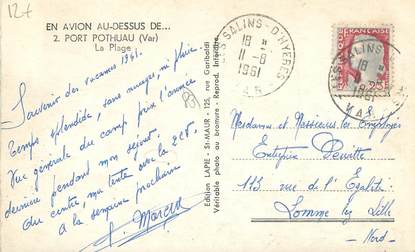 12+
EN AVION AU-DESSUS DE...
2. PORT POTHUAU (Var)
La Plage
Souvenir des vacances 1961.
Temps splendide, sans nuages, ni pluie.
Vue générale du camp prix l'année
dernière pendant mon séjour.
Au centre, ma tente avec la 2CV.
A la semaine prochaine
Marcel
83
Edition LAPIE - St-MAUR - 125, rue Garibaldi
Véritable photo au bromure - Reprod. Interdite
LES SALINS-D'HYERES
18 H
11-8
1961
VAR
FRANÇAISE
LES SALINS
18
1961
VAR
0,25
Mesdames et Messieurs les Employés
Entreprise
113 rue de l'Egalité
Lomme lez Lille
Nord